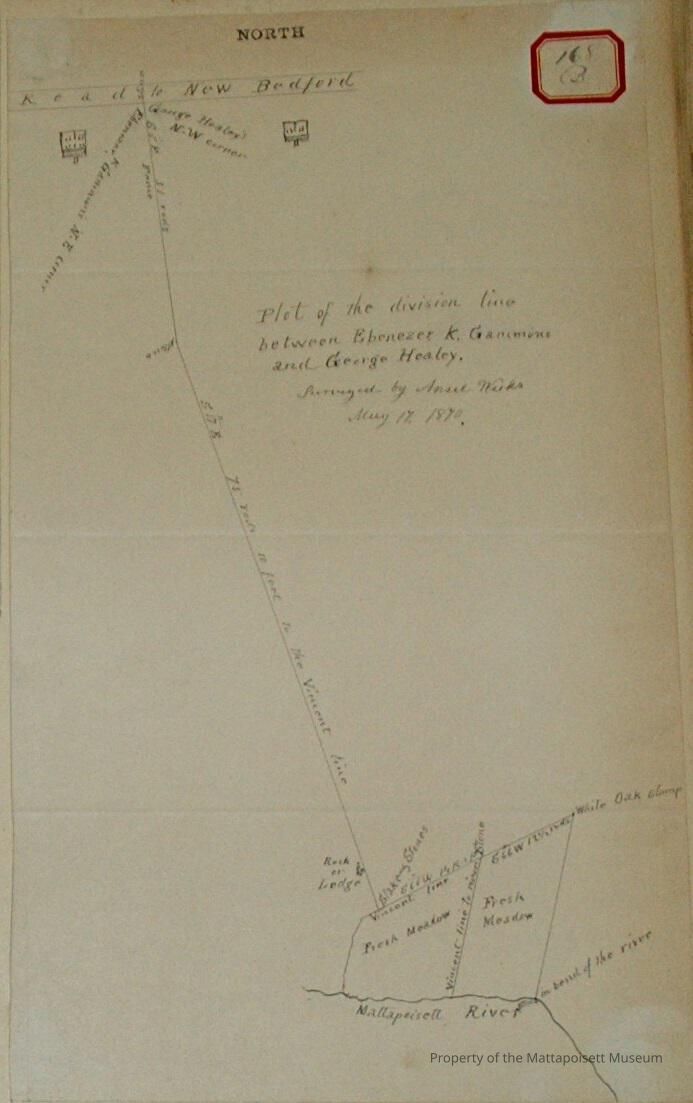 NORTH
168
B
Road to New Bedford
George Healey's
N.W corner
Ebenezer K Gammons N.E. corner
11 rods
Plot of the division line
between Ebenezer K. Gammons
and George Healey.
Surveyed by Ansel Weeks
May 17, 1870.
75 rods 10 foot to the Vincent line
White Oak Stump
Rock
or
Ledge
Stones
Vincent line
Vincent line to river
Stone
Fresh Meadow
Fresh
Meadow
bend of the river
Mattapoisett River
Property of the Mattapoisett Museum